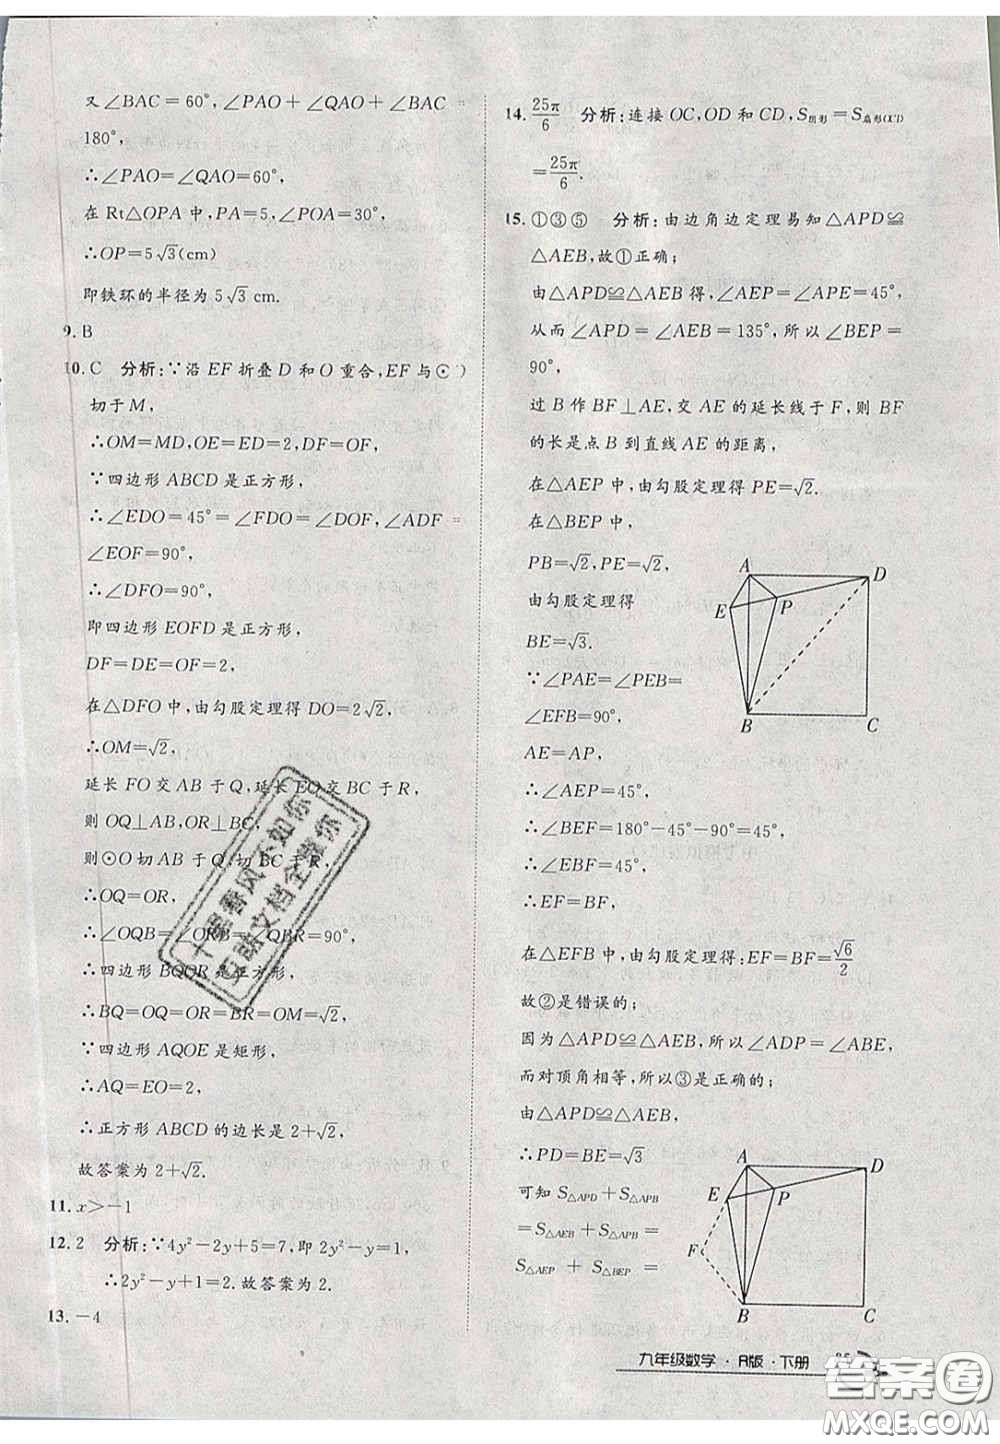 又∠BAC=60°,∠PAO+∠QAO+∠BAC=
180°,
∴∠PAO=∠QAO=60°,
在 Rt△OPA 中,PA=5,∠POA=30°,
∴OP=5√3(cm)
即铁环的半径为5√3 cm.
9. B
10. C 分析:∵沿 EF 折叠 D 和 O 重合,EF 与⊙
切于 M,
∴OM=MD,OE=ED=2,DF=OF,
∵四边形 ABCD 是正方形,
∴∠EDO=45°=∠FDO=∠DOF,∠ADF=
∠EOF=90°,
∴∠DFO=90°,
即四边形 EOFD 是正方形,
DF=DE=OF=2,
在△DFO 中,由勾股定理得 DO=2√2,
∴OM=√2,
延长 FO 交 AB 于 Q,延长 EO 交 BC 于 R,
则 OQ⊥AB,OR⊥BC,
则⊙O 切 AB 于 Q,切 BC 于 R,
∴OQ=OR,
∴∠OQB=∠ORB=∠QBR=90°,
∴四边形 BQOR 是正方形,
∴BQ=OQ=OR=BR=OM=√2,
∵四边形 AQOE 是矩形,
∴AQ=EO=2,
∴正方形 ABCD 的边长是 2+√2,
故答案为 2+√2.
11. x>-1
12. 2 分析:∵4y²-2y+5=7,即 2y²-y=1,
∴2y²-y+1=2.故答案为 2.
13. -4
14. 25π/6 分析:连接 OC,OD 和 CD,S阴影=S扇形OCD
=25π/6.
15. ①③⑤ 分析:由边角边定理易知△APD≌
△AEB,故①正确;
由△APD≌△AEB 得,∠AEP=∠APE=45°,
从而∠APD=∠AEB=135°,所以∠BEP=
90°,
过 B 作 BF⊥AE,交 AE 的延长线于 F,则 BF
的长是点 B 到直线 AE 的距离,
在△AEP 中,由勾股定理得 PE=√2.
在△BEP 中,
PB=√2,PE=√2,
由勾股定理得
BE=√3.
∵∠PAE=∠PEB=
∠EFB=90°,
AE=AP,
∴∠AEP=45°,
∴∠BEF=180°-45°-90°=45°,
∴∠EBF=45°,
∴EF=BF,
在△EFB 中,由勾股定理得:EF=BF=√6/2
故②是错误的;
因为△APD≌△AEB,所以∠ADP=∠ABE,
而对顶角相等,所以③是正确的;
由△APD≌△AEB,
∴PD=BE=√3
可知 S△APD+S△APB
=S△AEB+S△APB=
S△AEP+S△BEP=
A
D
E
P
B
C
A
D
E
P
F
B
C
十里春风不如你
互助文档全靠你
九年级数学·R版·下册
答案圈
MXQE.COM